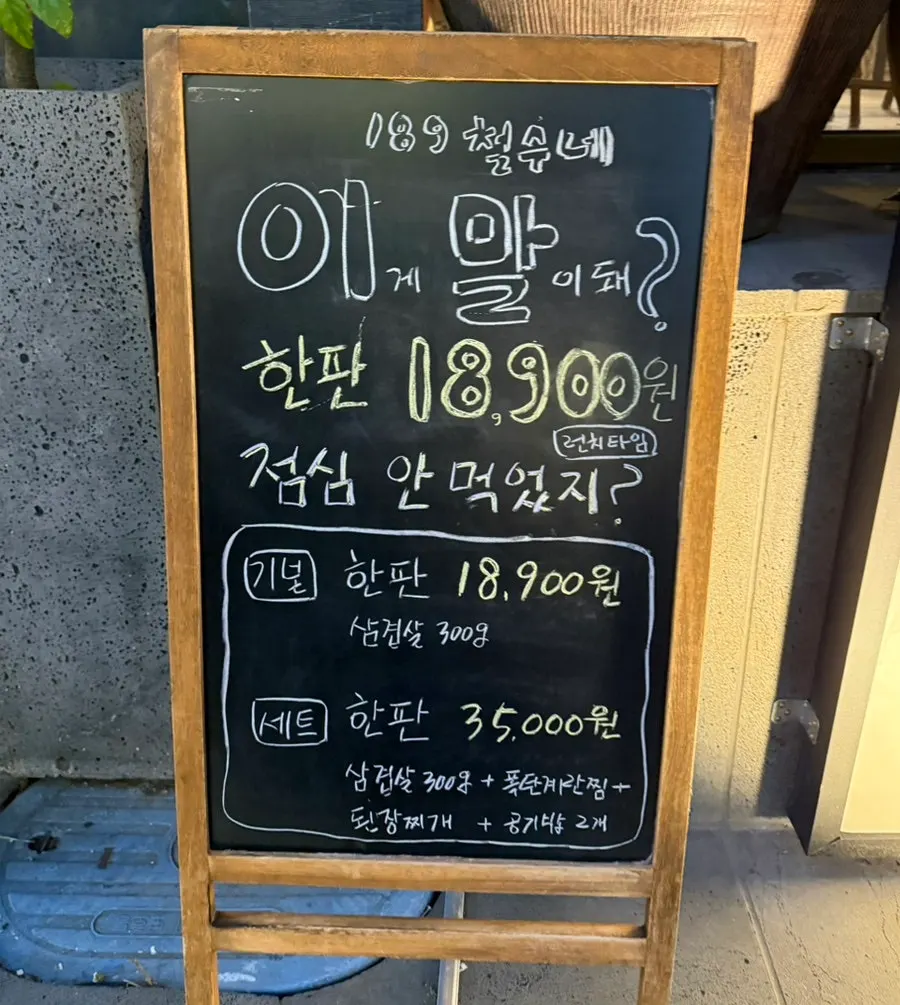 189 철수네
이게 말이 돼?
한판 18,900원
런치타임
점심 안 먹었지?
기본 한판 18,900원
삼겹살 300g
세트 한판 35,000원
삼겹살 300g + 폭탄계란찜 +
된장찌개 + 공기밥 2개